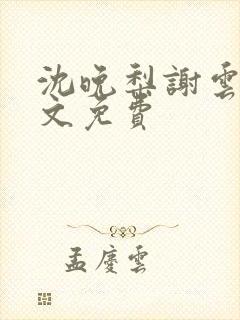 沈晚梨謝雲
文免費
孟慶雲